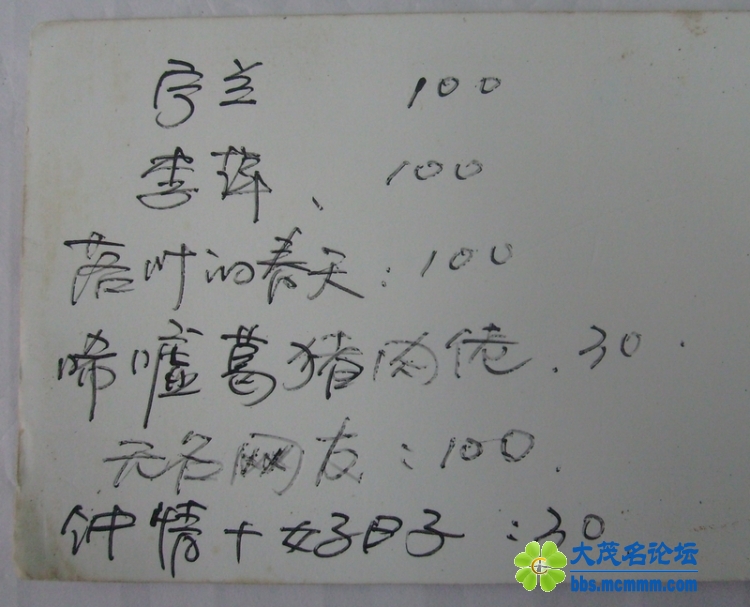 100
李萍、100
落叶的春天：100
唏嘘葛猪肉佬．30．
无名网友：100．
钟情+好日子：30
大茂名论坛
bbs.mcmmm.com